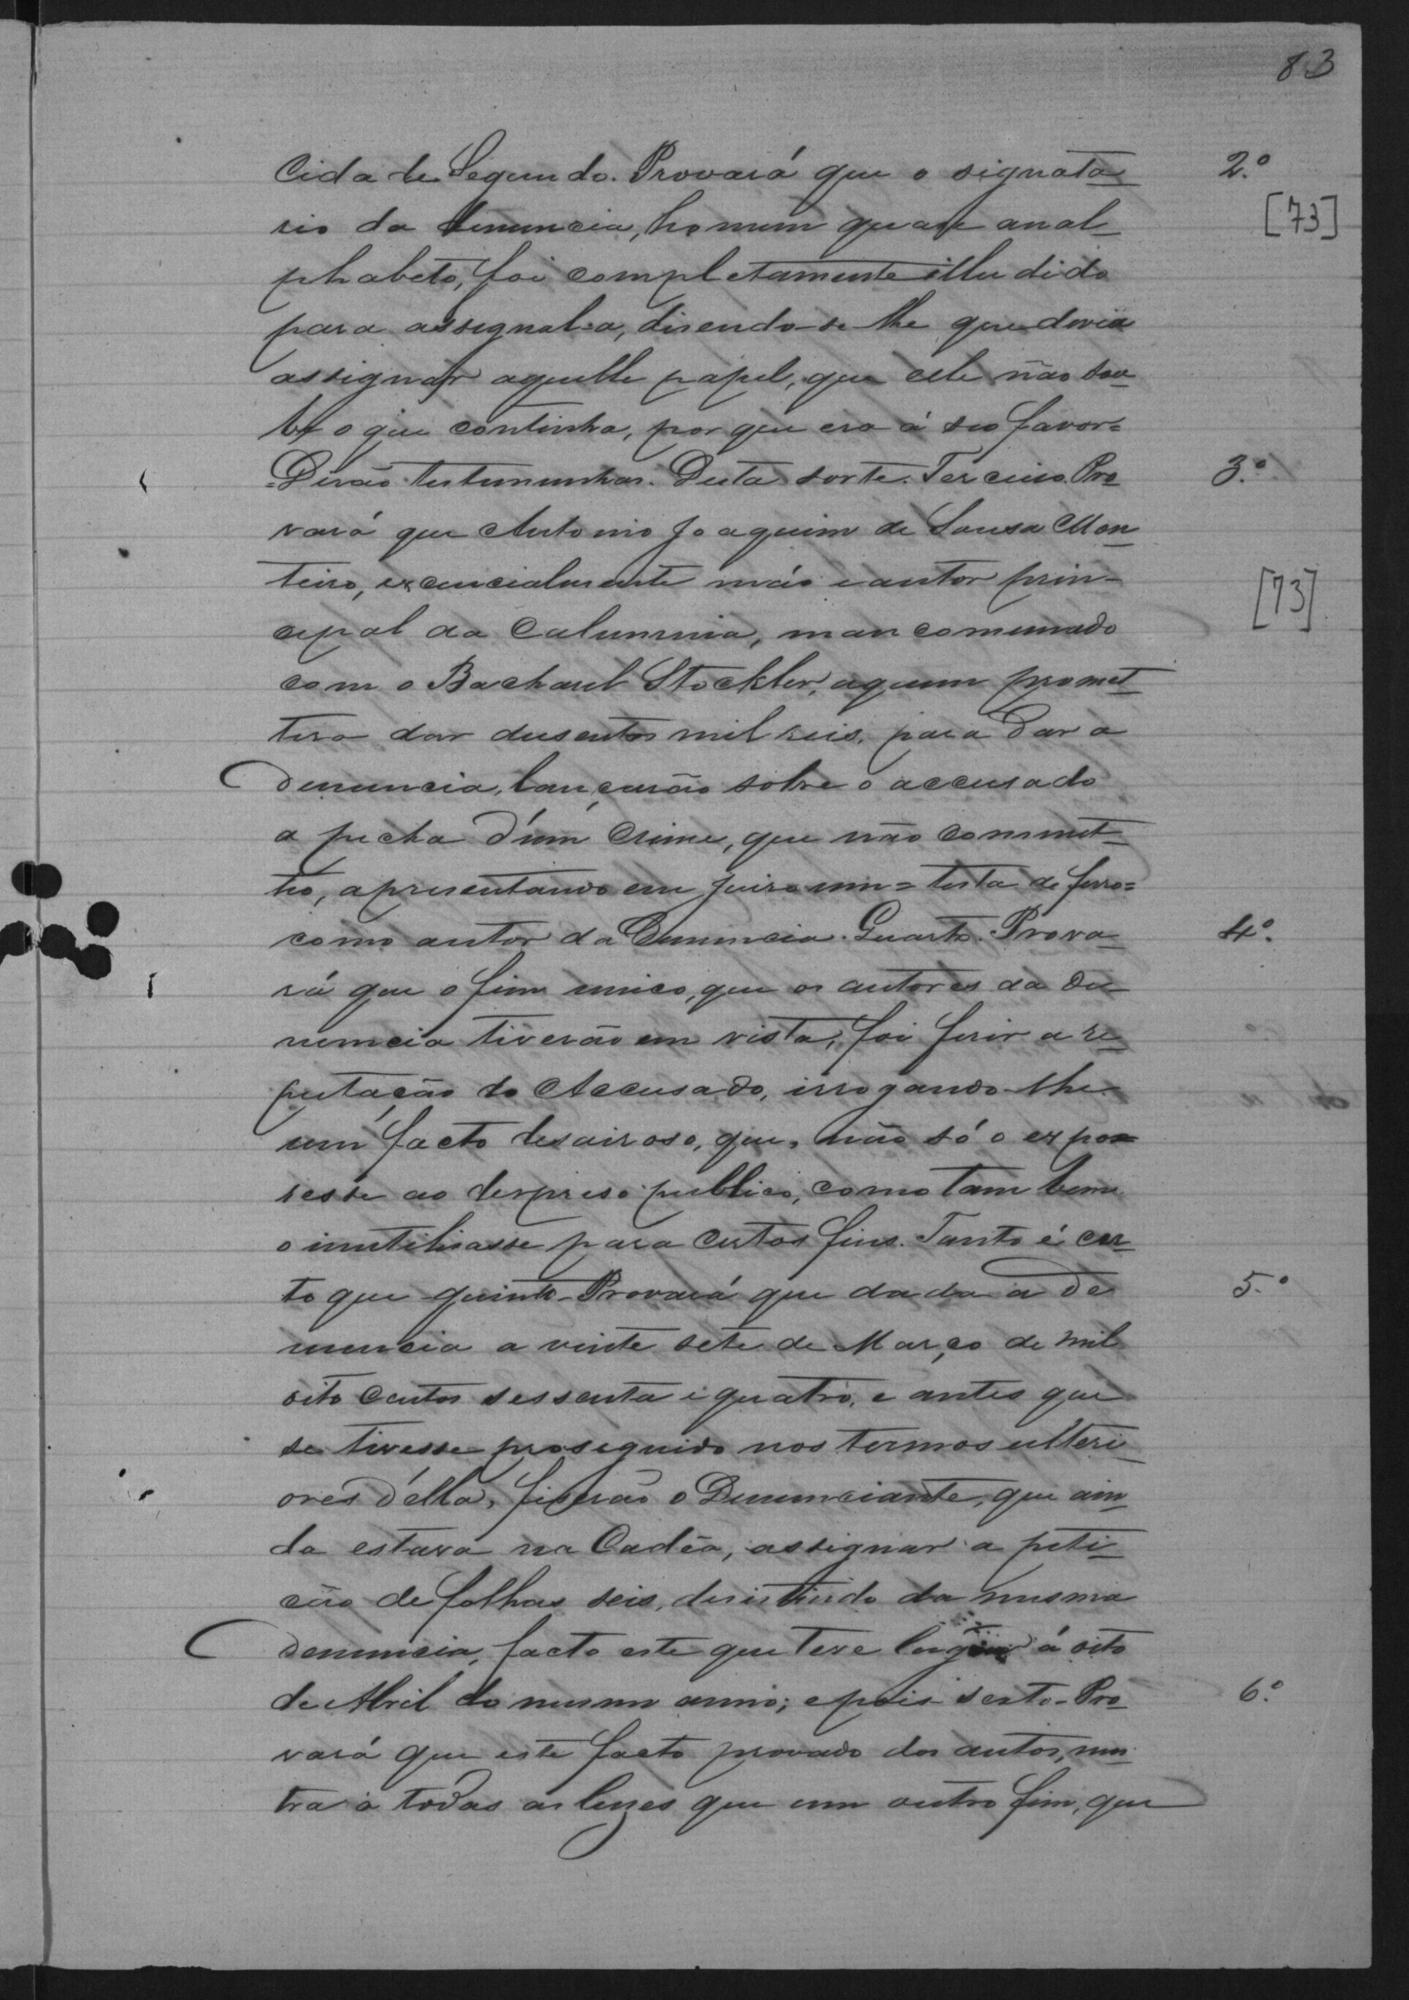 83
cida de Segundo. Provará que o signata- 2º
rio da denuncia, homem quase anal- [73]
phabeto, foi completamente illudido
para assignal-a, disendo-se lhe que devia
assignar aquelle papel, que elle não sou-
be o que continha, por que era á seo favor=
=Dirão testemunhas. Desta sorte. Terceiro. Pro- 3º
vará que Antonio Joaquim de Sousa Mon-
teiro, excencialmente máo e autor prin- [73]
cipal da Calumnia, mancomunado
com o Bacharel Stockler, aquem promet-
tera dar dusentos mil reis, para dar a
denuncia, lançarão sobre o accusado
a pecha d'um crime, que não commet-
teo, apresentando em Juiso um = testa de ferro=
como autor da Denuncia. Quarto. Prova- 4º
rá que o fim unico, que os autores da de-
nuncia tiverão em vista, foi ferir a re-
putação do Accusado, irrogando-lhe
um facto desairoso, que, não só o expo-
sesse ao despreso publico, como tambem
o inutilisasse para certos fins. Tanto é cer-
to que quinto - Provará que dada a de 5º
nuncia a vinte sete de Março de mil
oito centos sessenta e quatro, e antes que
se tivesse proseguido nos termos ulteri
ores d'ella, fiserão o Denunciante, que ain-
da estava na Cadêa, assignar a peti-
ção de folhas seis, desistindo da mesma
denuncia, facto este que teve lugar á oito
de Abril do mesmo anno; e pois sexto - Pro- 6º
vará que este facto provado dos autos, mos
tra á todas as luzes que um outro fim, que